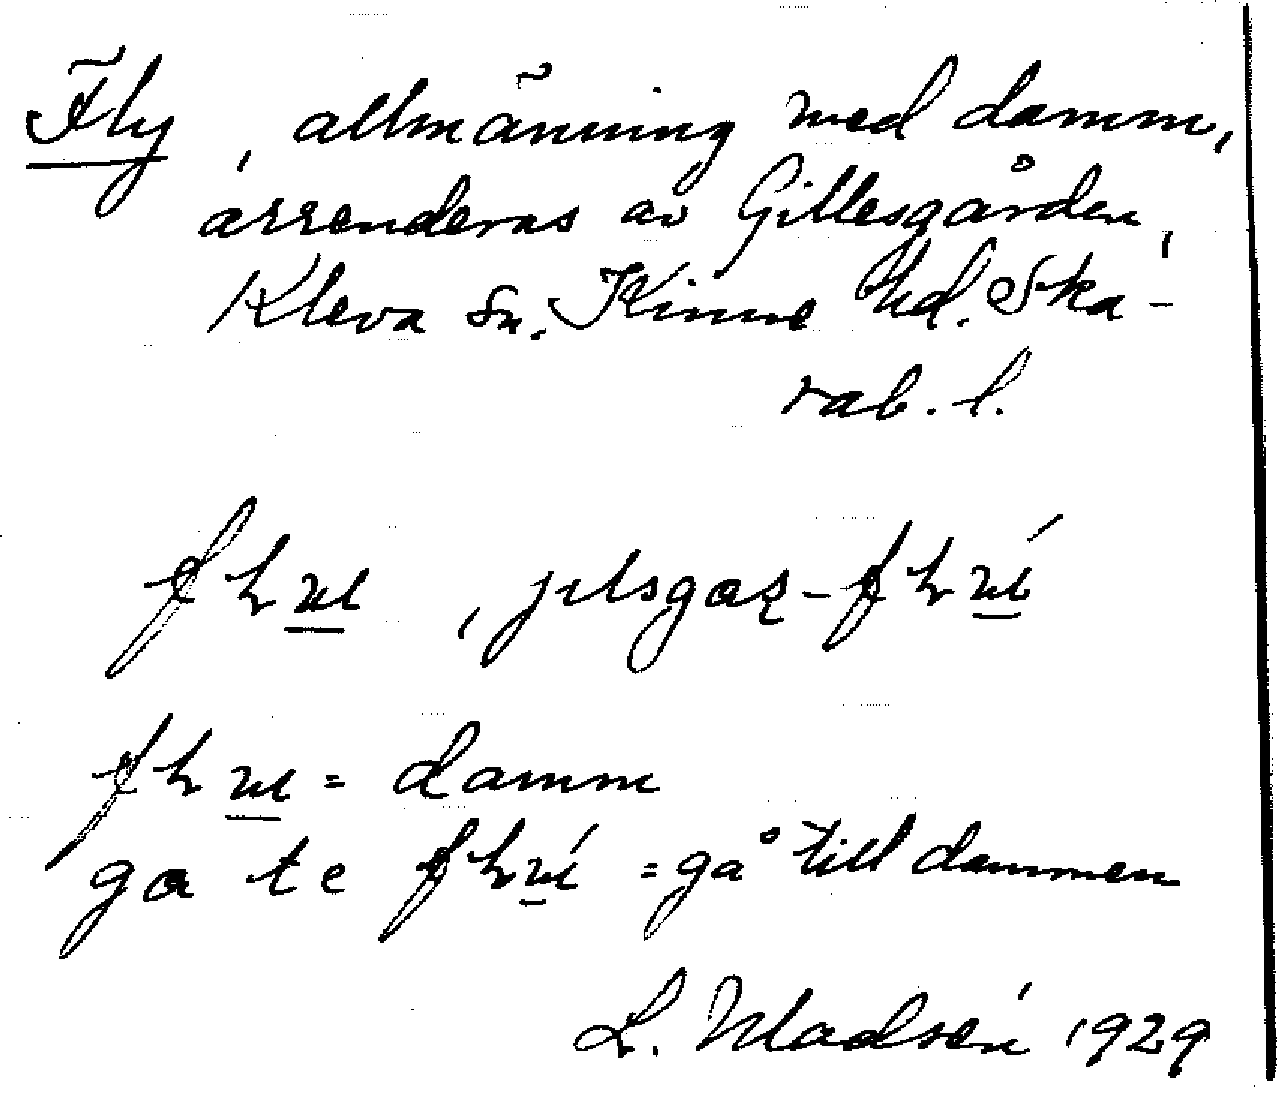 Fly, allmänning med damm,
arrenderas av Gillesgården,
Kleva sn. Kinne hd. Ska-
rab. l.
, jɩlsgaʀ-
= damm
ga te = gå till dammen
L. Madsén 1929